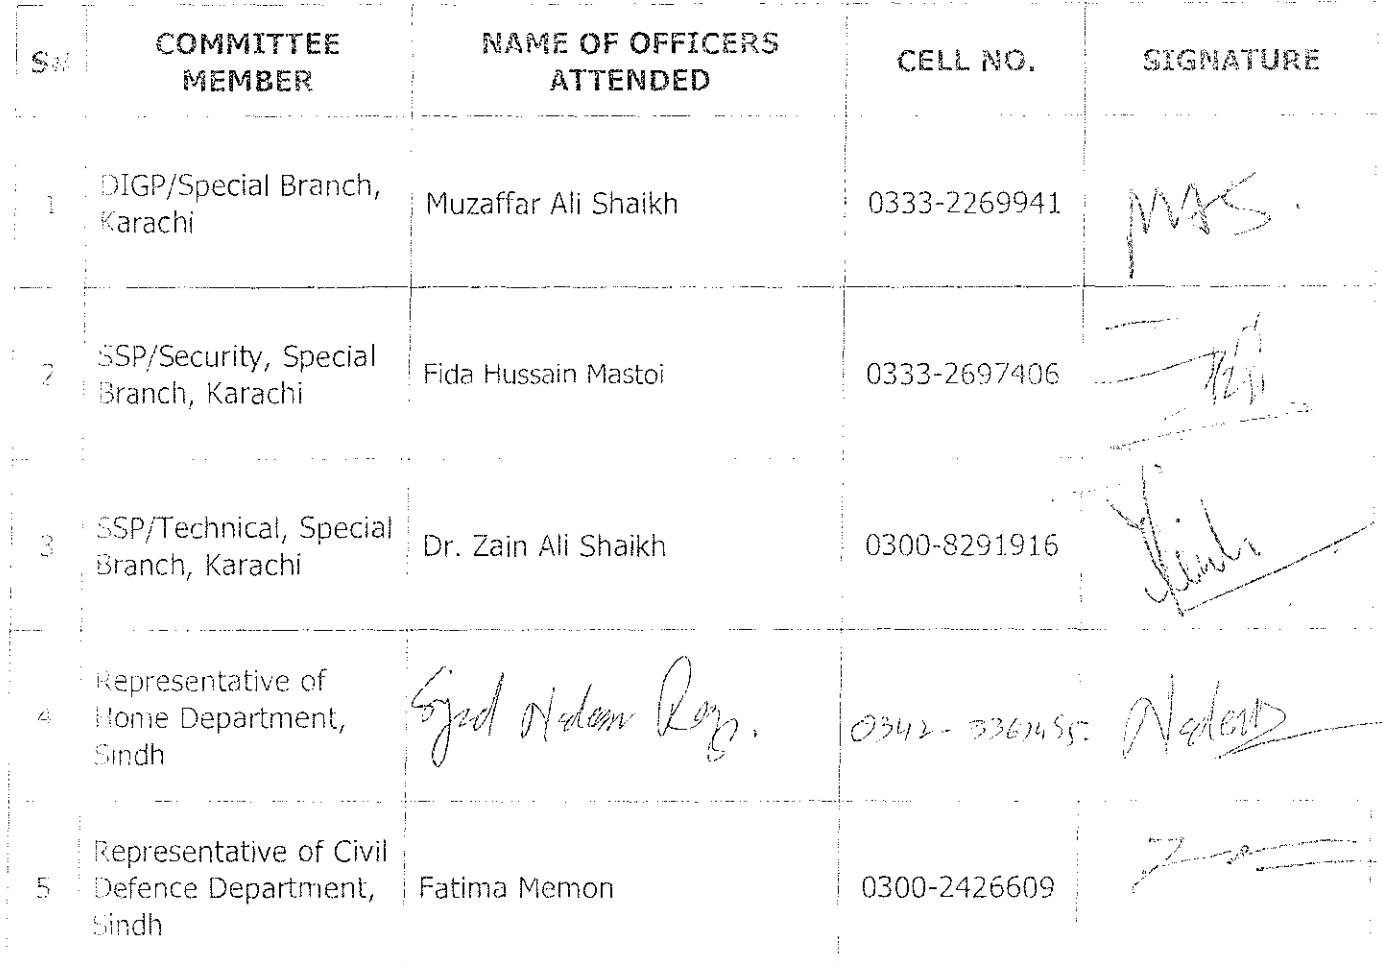 S#
COMMITTEE
MEMBER
NAME OF OFFICERS
ATTENDED
CELL NO.
SIGNATURE
1
DIGP/Special Branch,
Karachi
Muzaffar Ali Shaikh
0333-2269941
MAS.
2
SSP/Security, Special
Branch, Karachi
Fida Hussain Mastoi
0333-2697406
3
SSP/Technical, Special
Branch, Karachi
Dr. Zain Ali Shaikh
0300-8291916
4
Representative of
Home Department,
Sindh
Syed Nadeem
0342-
5
Representative of Civil
Defence Department,
Sindh
Fatima Memon
0300-2426609